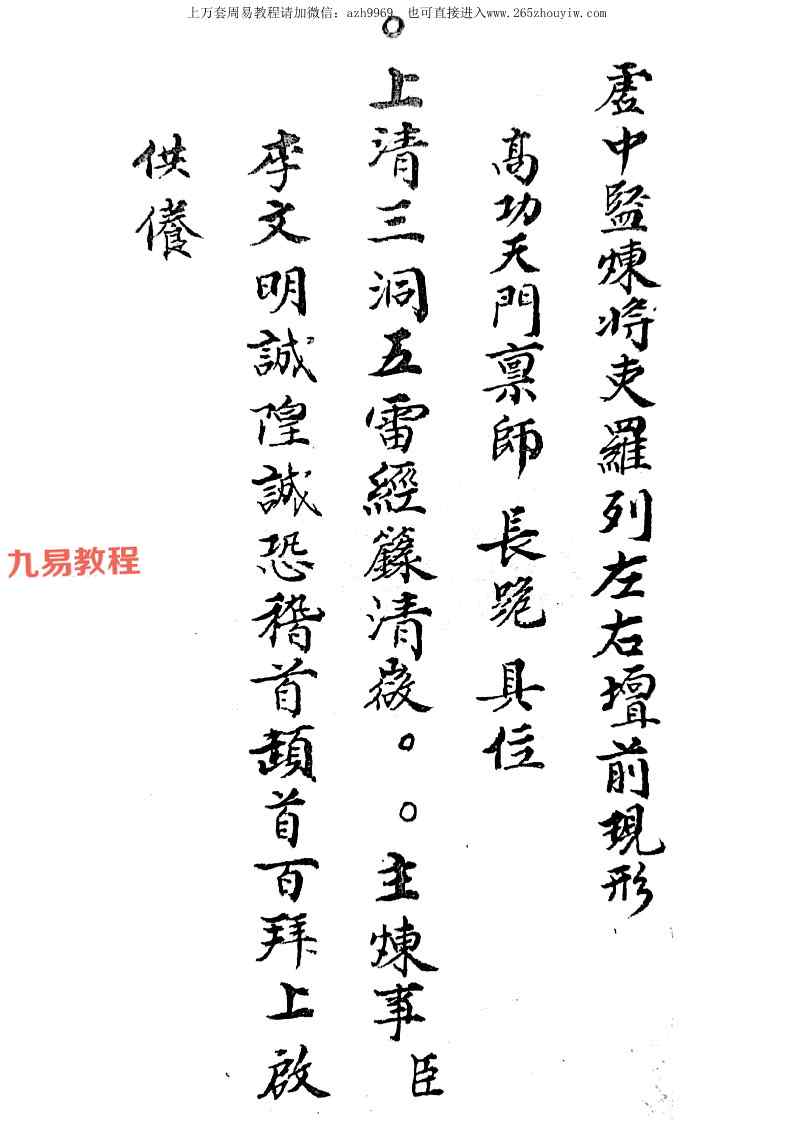 上万套周易教程请加微信：azh9969，也可直接进入www.265zhouyiw.com
虛中監煉將吏羅列左右壇前現形
高功天門禀師 長跪 具位
○上清三洞五雷經籙清微○○主煉事臣
李文明誠隍誠恐稽首頓首百拜上啟
供儀
九易教程